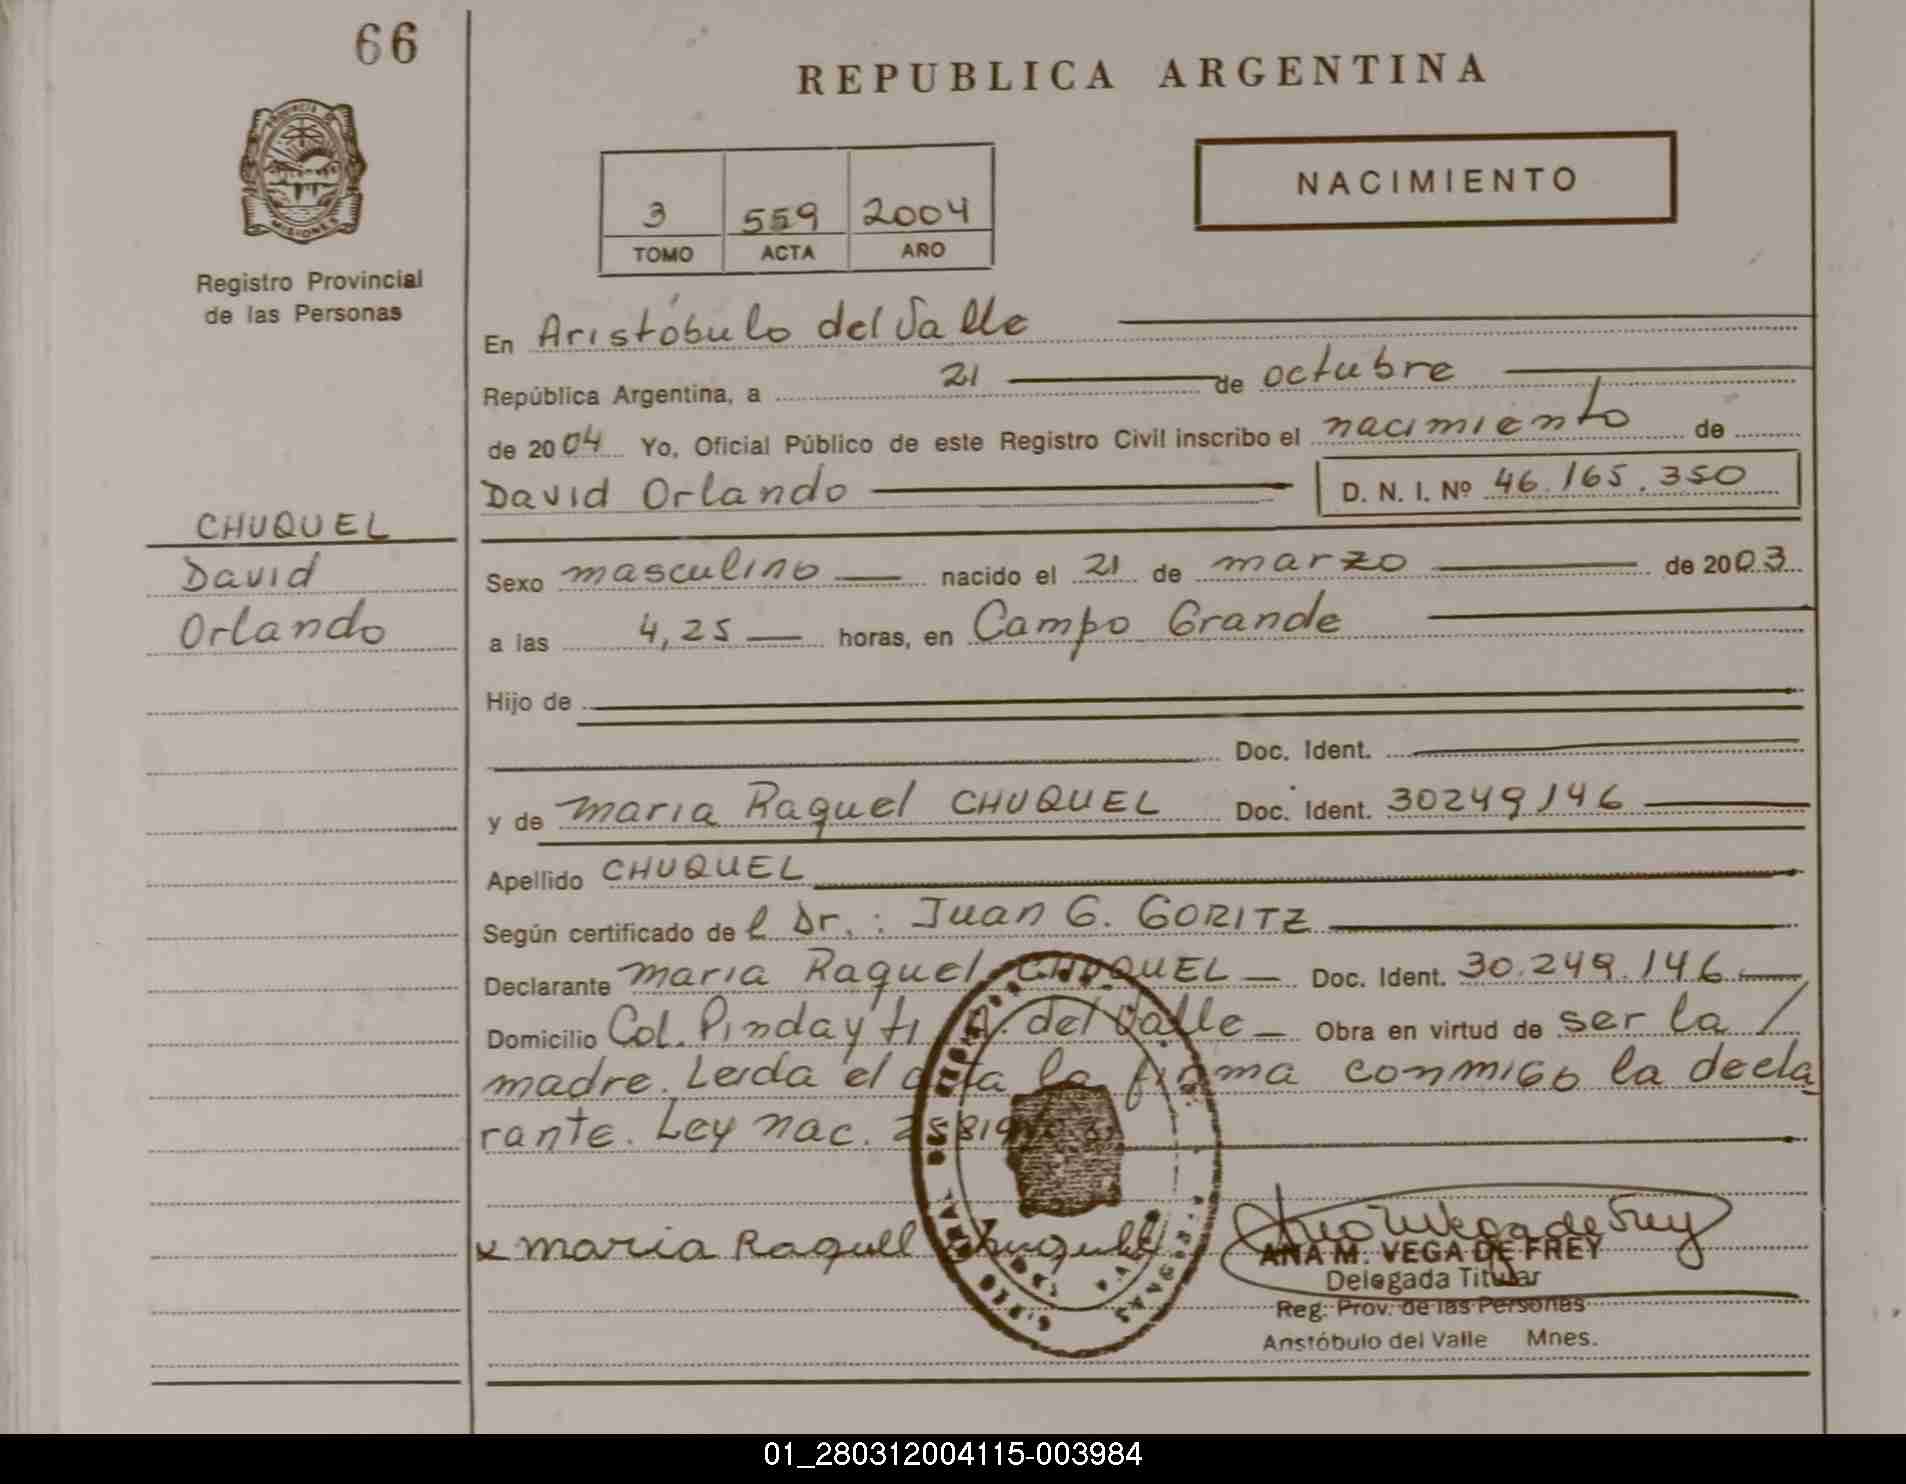 66
REPUBLICA ARGENTINA
PROVINCIA DE
MISIONES
Registro Provincial
de las Personas
3 559 2004
TOMO ACTA AÑO
NACIMIENTO
En Aristóbulo del Valle
República Argentina, a 21 de octubre
de 2004 Yo, Oficial Público de este Registro Civil inscribo el nacimiento de
David Orlando D. N. I. Nº 46.165.350
CHUQUEL
David
Orlando
Sexo masculino nacido el 21 de marzo de 2003
a las 4,25 horas, en Campo Grande
Hijo de
Doc. Ident.
y de Maria Raquel CHUQUEL Doc. Ident. 30249146
Apellido CHUQUEL
Según certificado de l Dr.: Juan G. GORITZ
Declarante Maria Raquel CHUQUEL Doc. Ident. 30.249.146
Domicilio Col. Pindayti A. del Valle Obra en virtud de ser la /
madre. Leida el acta la firma conmigo la decla
rante. Ley nac. 25819
x maria Raquel Chuquel
ANA M. VEGA DE FREY
Delegada Titular
Reg. Prov. de las Personas
Aristóbulo del Valle Mnes.
01_280312004115-003984